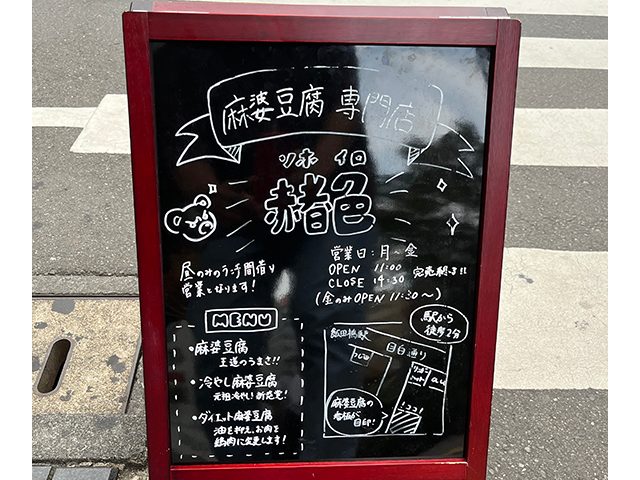 麻婆豆腐 専門店
ソホ イロ
赭色
営業日:月~金
OPEN 11:00
CLOSE 14:30
完売閉店!!
(金のみOPEN 11:30~)
昼のみのランチ間借り
営業となります!
MENU
・麻婆豆腐
王道のうまさ!!
・冷やし麻婆豆腐
元祖冷やし!新発売!
・ダイエット麻婆豆腐
油を抑え、お肉を
鶏肉に変更します!
駅から
徒歩2分
飯田橋駅
目白通り
au
ココ!
麻婆豆腐の
看板が
目印!